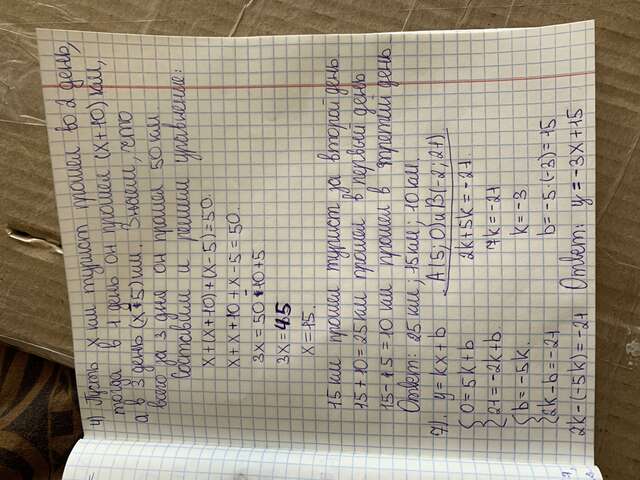 4) Пусть х км турист прошел во 2 день,
тогда в 1 день он прошел (х+10) км,
а в 3 день (х-5) км. Знаем, что
всего за 3 дня он прошел 50 км.
Составим и решим уравнение:
х+(х+10)+(х-5)=50.
х+х+10+х-5=50.
3х=50-10+5
3х=45
х=15.
15 км прошел турист за второй день
15+10=25 км прошел в первый день
15-5=10 км прошел в третий день
Ответ: 25 км; 15 км; 10 км.
7). y=kx+b A(5;0) и B(-2;21)
{0=5k+b
21=-2k+b.
{b=-5k.
2k-b=-21
2k-(-5k)=-21
2k+5k=-21
7k=-21
k=-3
b=-5·(-3)=15
Ответ: y=-3x+15